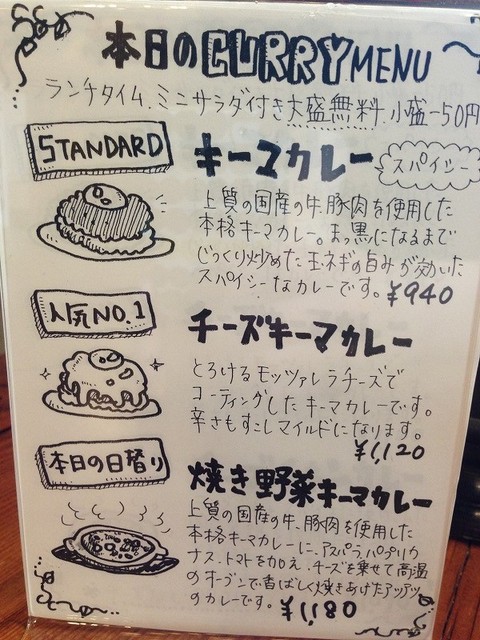 本日のCURRY MENU
ランチタイム、ミニサラダ付き大盛無料、小盛-50円
STANDARD
キーマカレー
スパイシー
上質の国産の牛、豚肉を使用した
本格キーマカレー。まっ黒になるまで
じっくり炒めた玉ネギの旨みが効いた
スパイシーなカレーです。¥940
人気NO.1
チーズキーマカレー
とろけるモッツァレラチーズで
コーティングしたキーマカレーです。
辛さもすこしマイルドになります。
¥1,120
本日の日替り
焼き野菜キーマカレー
上質の国産の牛、豚肉を使用した
本格キーマカレーに、アスパラ、パプリカ
ナス、トマトを加え、チーズを乗せて高温
のオーブンで香ばしく焼きあげたアツアツ
のカレーです。¥1,180